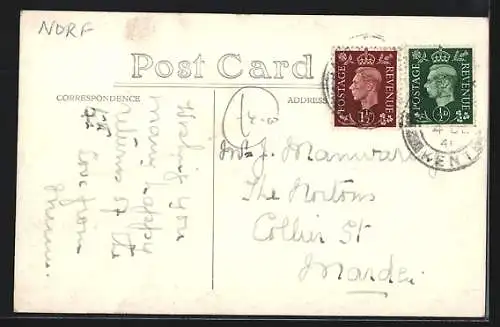 NORF
Post Card
CORRESPONDENCE
ADDRESS
Wishing you
many happy
returns of the
Love from
POSTAGE REVENUE
1½D
POSTAGE REVENUE
½D
KENT
Mr J. Manwaring
The Nortons
Collier St
Marden